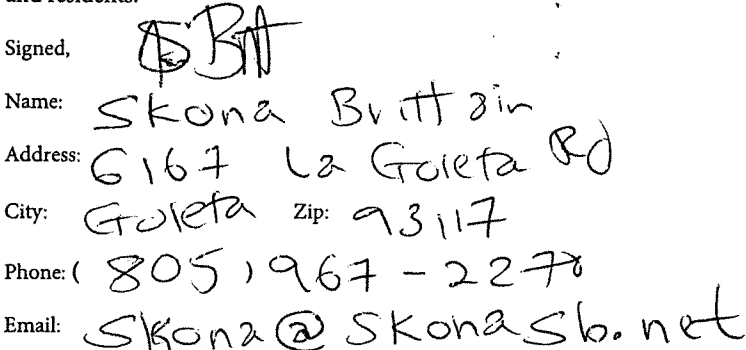 and residents.
Signed,
Name: Skona Brittain
Address: 6167 La Goleta Rd
City: Goleta Zip: 93117
Phone: (805) 967-2278
Email: Skona@Skonasb.net